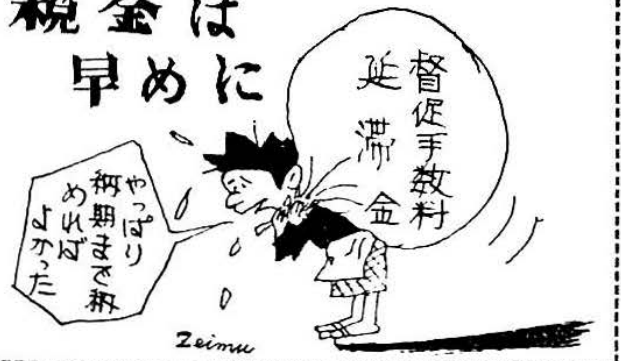 税金は
早めに
督促手数料
延滞金
やっぱり
納期まで納
めれば
よかった
Zeimu